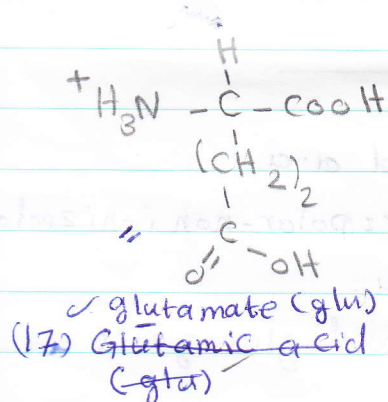 H
⁺H₃N - C - COOH
(CH₂)₂
C
O OH
glutamate (glu)
(17) Glutamic acid
(glu)